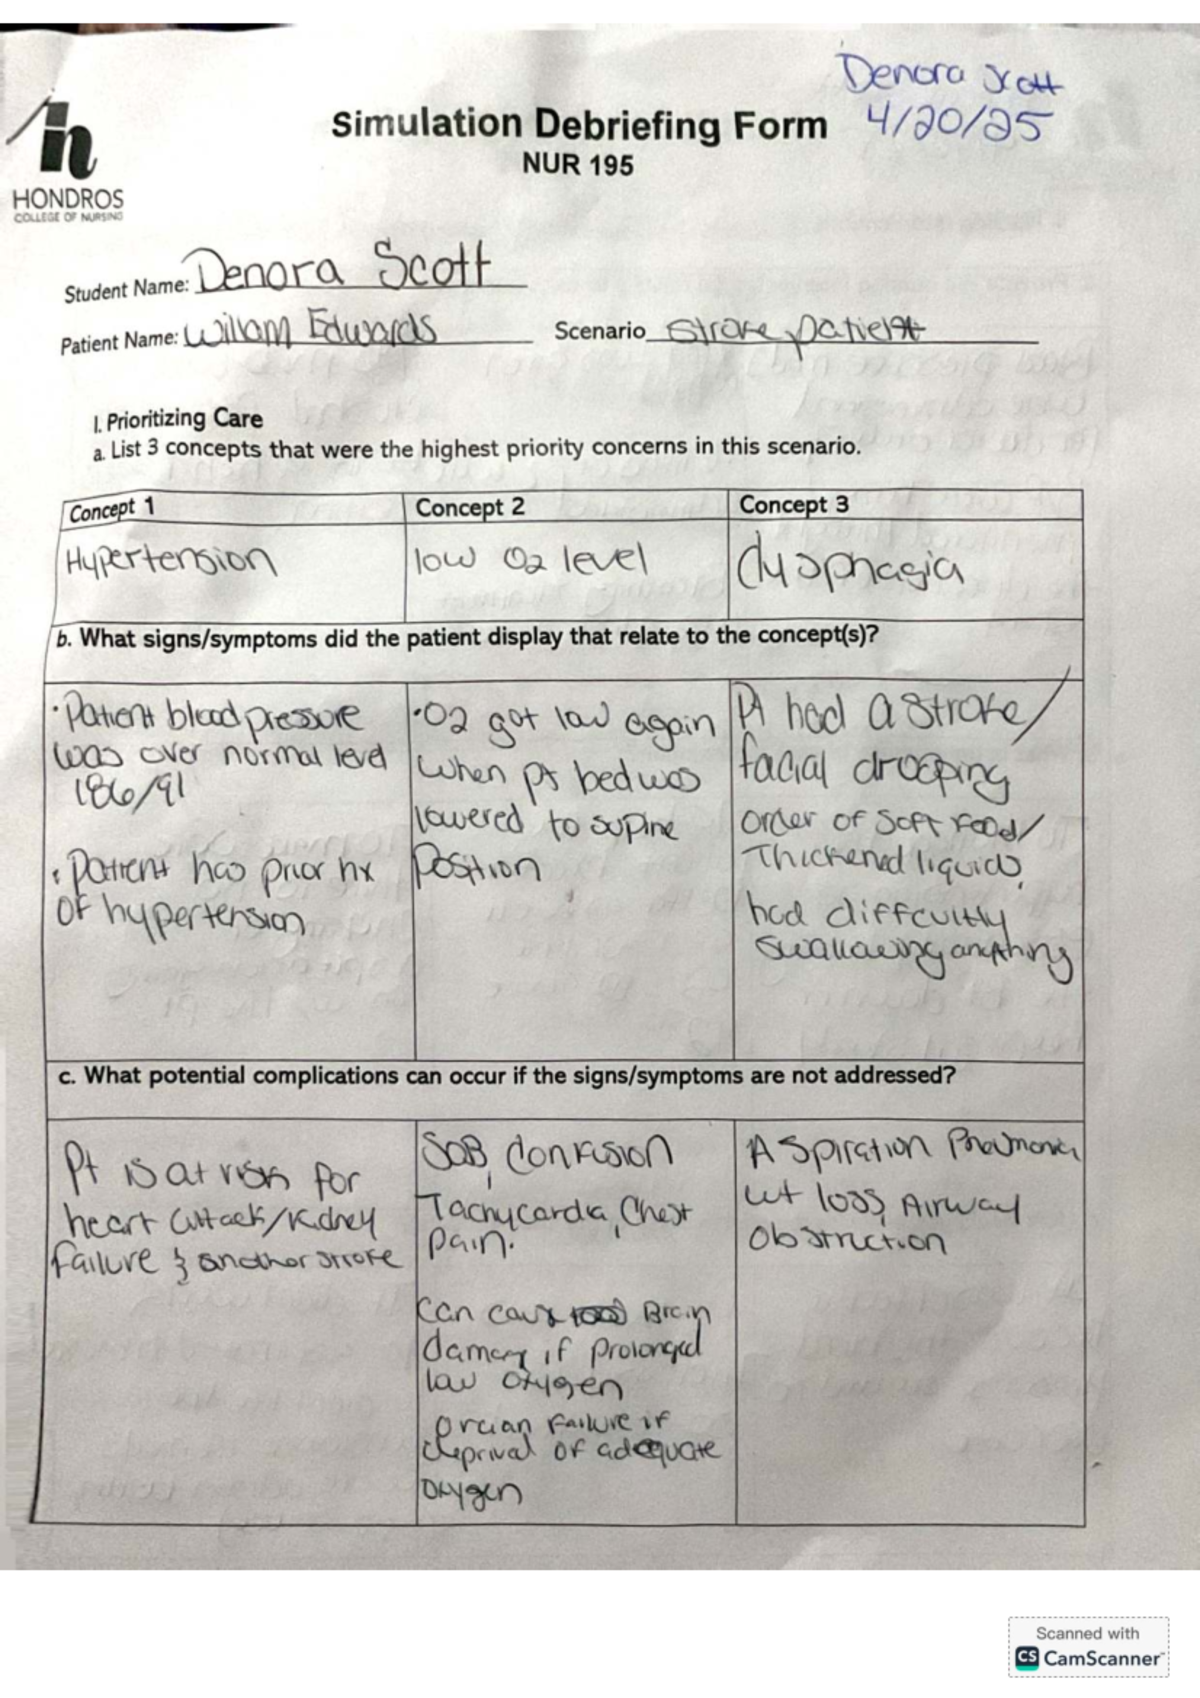 Denora Scott
4/20/25
Simulation Debriefing Form
NUR 195
HONDROS
COLLEGE OF NURSING
Student Name: Denora Scott
Patient Name: Willam Edwards Scenario Stroke patient
I. Prioritizing Care
a. List 3 concepts that were the highest priority concerns in this scenario.
Concept 1 Concept 2 Concept 3
Hypertension low O2 level dysphagia
b. What signs/symptoms did the patient display that relate to the concept(s)?
· Patient blood pressure
was over normal level
186/91
· Patient has prior hx
of hypertension
· O2 got low again
when pts bed was
lowered to supine
Position
Pt had a stroke/
facial drooping
order of soft food/
Thickened liquids,
had diffcultly
swallowing anything
c. What potential complications can occur if the signs/symptoms are not addressed?
Pt is at risk for
heart attack/kidney
failure & another stroke
SOB, Confusion
Tachycardia, Chest
pain.
Can cause Brain
damage if prolonged
low oxygen
organ failure if
deprival of adequate
oxygen
Aspiration Pneumonia
wt loss, Airway
Obstruction
Scanned with
CS CamScanner